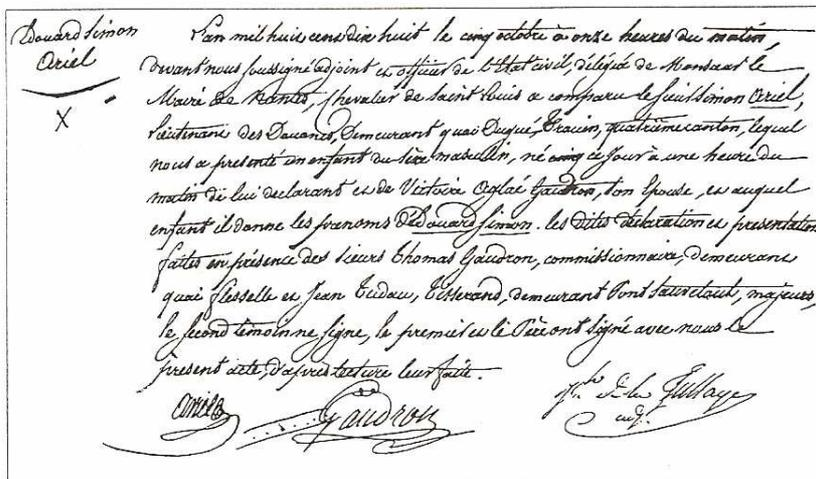 Edouard Simon
Ariel
X
L'an mil huit cent dix huit le cinq octobre à onze heures du matin,
devant nous soussigné adjoint et officier de l'Etat civil, délégué de Monsieur le
Maire de Nantes, chevalier de Saint Louis a comparu le Suis Simon Ariel,
lieutenant des Douanes, demeurant quai Duguétrouin, quatrième canton, lequel
nous a présenté un enfant du sexe masculin, né ce jour à une heure du
matin de lui declarant et de Victoire Aglaé Gaudron, son Epouse, et auquel
enfant il donne les prenoms d'Edouard Simon. les dites declaration et presentation
faites en présence des sieurs Thomas Gaudron, commissionnaire, demeurant
quai flesselle et Jean Tudau, Tisserand, demeurant Pont Sauvetout, majeurs,
le second témoin ne signe, le premier et le Père ont signé avec nous le
présent acte, d'après lecture leur faite.
Ariel Gaudron de la Tullaye
adj.